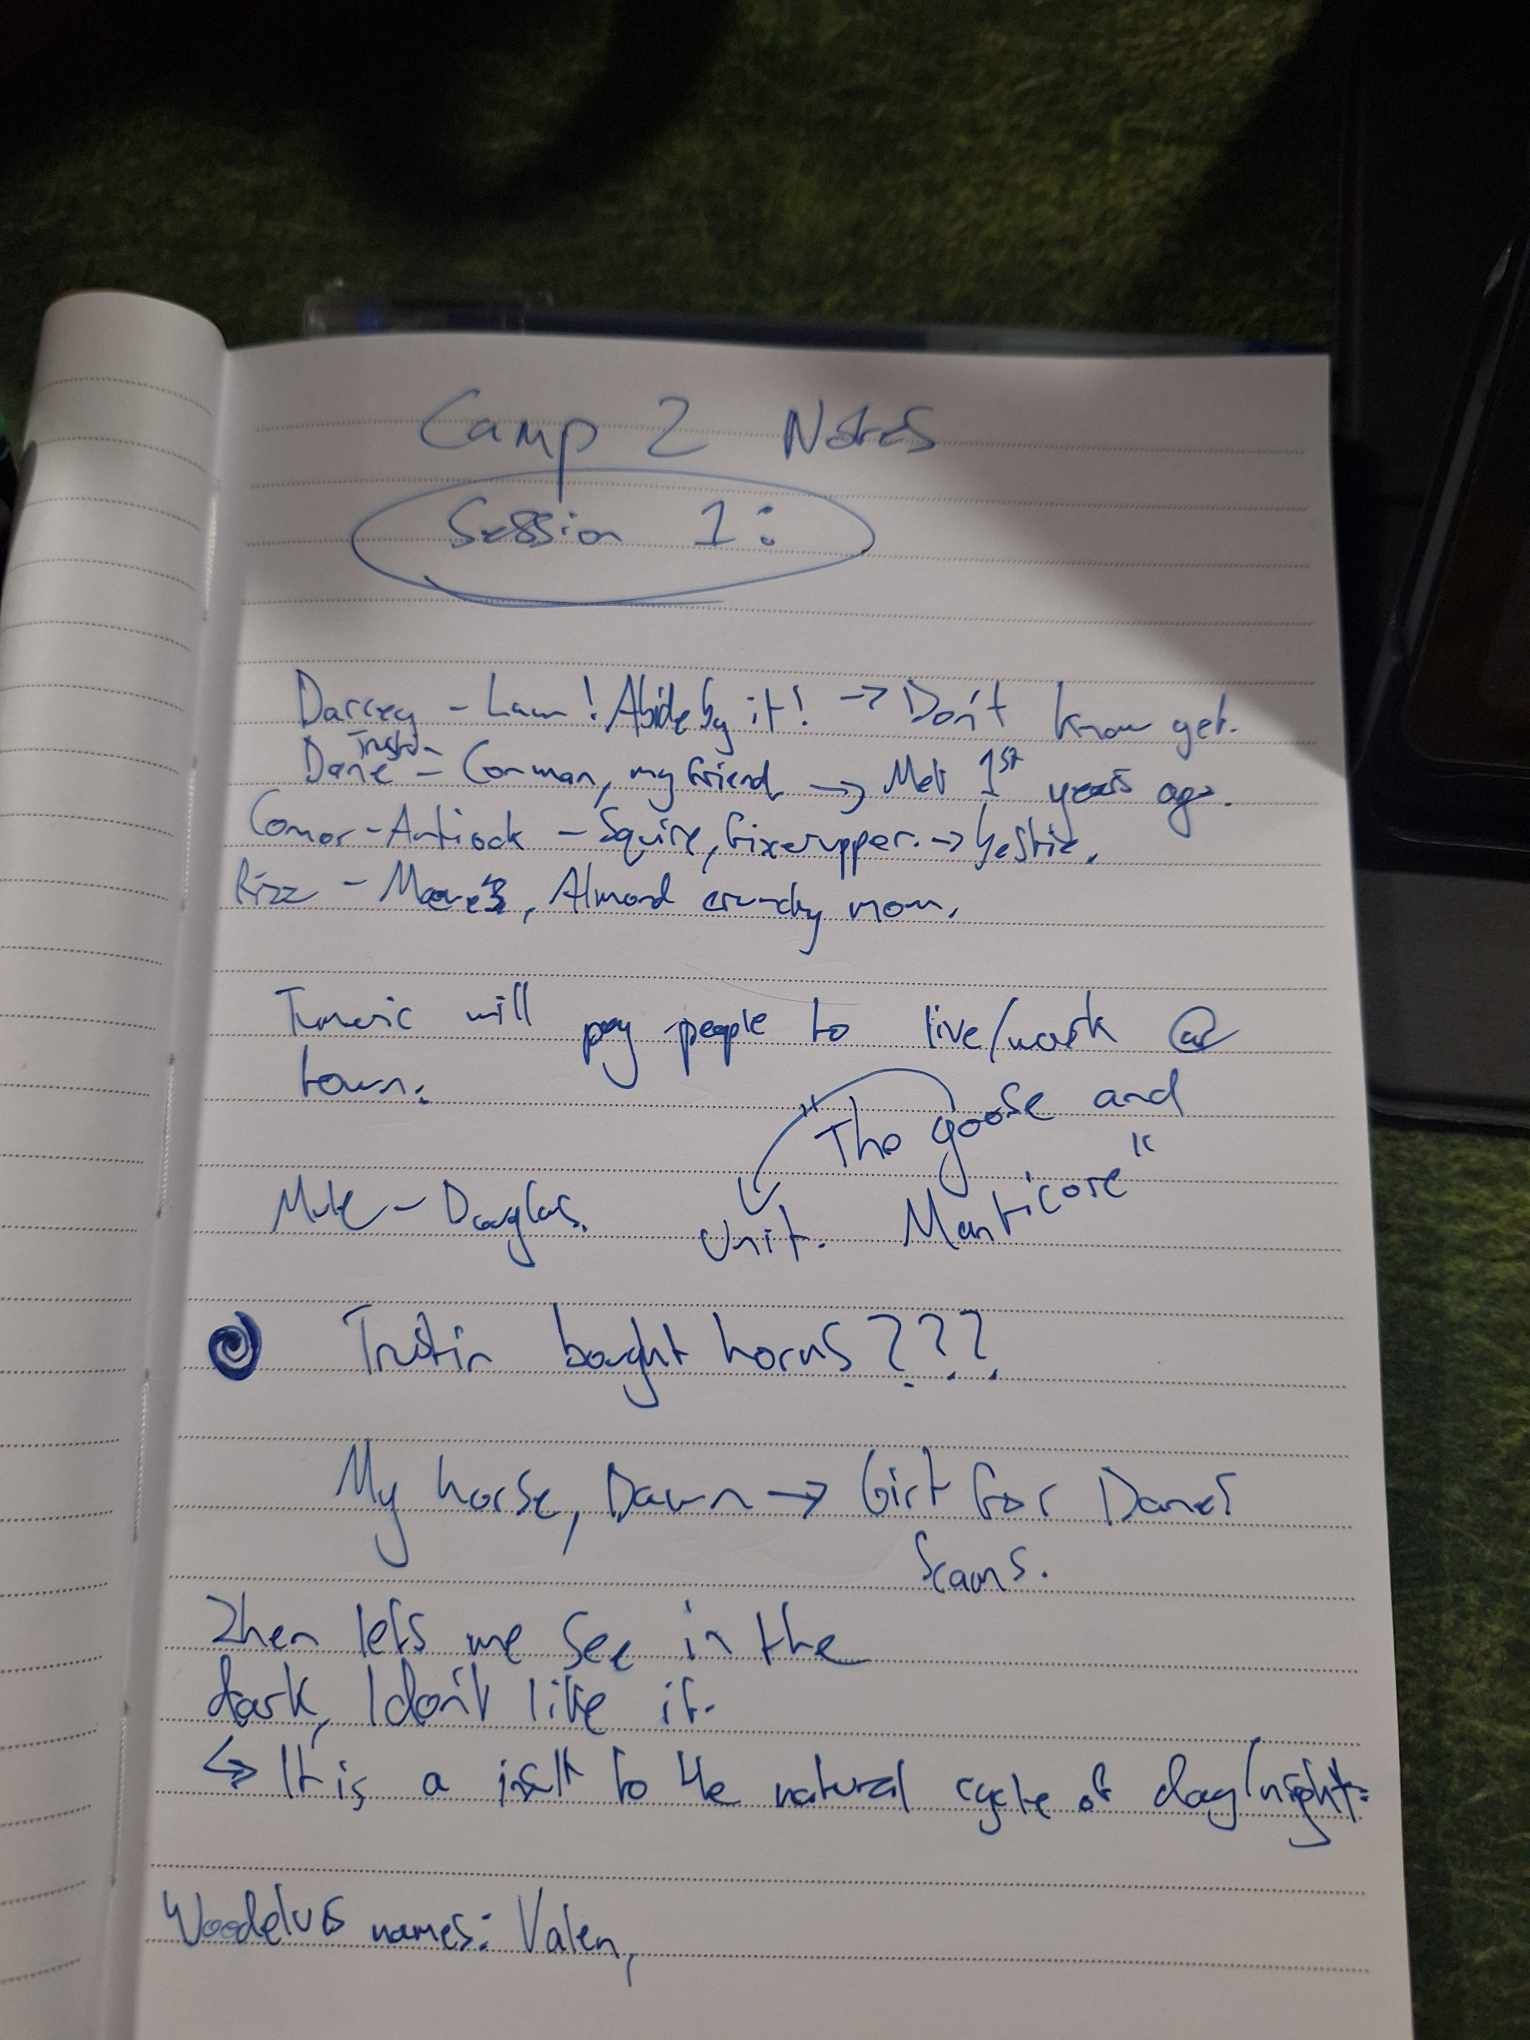 Camp 2 Notes
Session 1:
Darcey - Law! Abide by it! → Don't know yet.
Trustin
Dane - Corman, my friend → Met 1st years ago.
Conor - Antiock - Squire, fixerupper. →
Rizz - Almond crunchy mom.
Tumeric will pay people to live/work @
town.
"The goose and
Manticore"
Mule - Douglas.
Unit.
Trustin bought horns???
My horse, Dawn → Girt for Danes
Scams.
Zhen lets me see in the
dark, I don't like it.
↪ It is a inslt to the natural cycle of day/night.
Woodelves names: Valen,